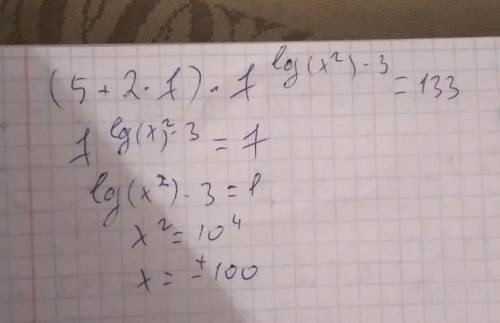 (5 + 2·7) · 7^(lg(x²) - 3) = 133
7^(lg(x)² - 3) = 7
lg(x²) - 3 = 1
x² = 10⁴
x = ±100